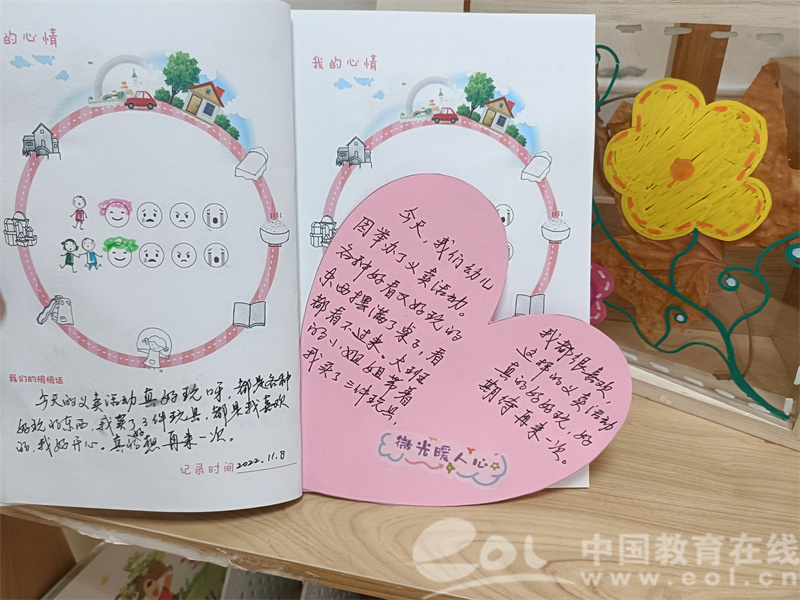 的心情
我们的悄悄话
今天的义卖活动真好玩呀，都是各种
好玩的东西，我买了3件玩具，都是我喜欢
的，我好开心。真的想再来一次。
记录时间 2022.11.8
我的心情
今天，我们幼儿
园举办了义卖活动。
各种好看又好玩的
东西摆满了桌子，看
都看不过来。大班
的小姐姐带着
我买了三件玩具，
我都很喜欢，
这样的义卖活动
真的好好玩，好
期待再来一次。
微光暖人心
eol 中国教育在线
www.eol.cn